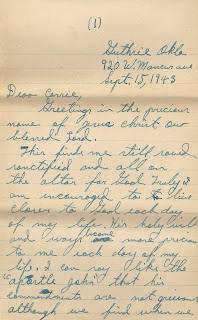 (1)
Guthrie Okla
920 W. Mansur ave
Sept. 15, 1943
Dear Carrie,
Greetings in the precious
name of Jesus Christ our
blessed Lord.
This finds me still saved
sanctified and all on
the altar for God. Truly I
am encouraged to live
closer to God each day
of my life. His holy will
and ways become more precious
to me each day of my
life. I can say like the
"apostle John" that his
commandments are not grievous
although we find when we